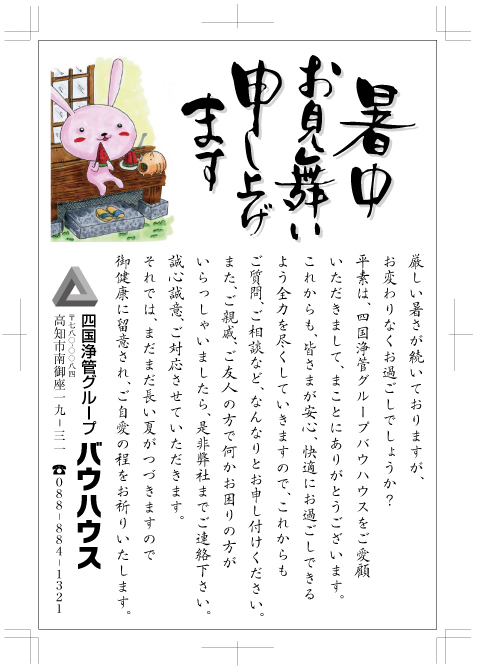 暑中
お見舞い
申し上げ
ます
厳しい暑さが続いておりますが、
お変わりなくお過ごしでしょうか?
平素は、四国浄管グループバウハウスをご愛顧
いただきまして、まことにありがとうございます。
これからも、皆さまが安心、快適にお過ごしできる
よう全力を尽くしていきますので、これからも
ご質問、ご相談など、なんなりとお申し付けください。
また、ご親戚、ご友人の方で何かお困りの方が
いらっしゃいましたら、是非弊社までご連絡下さい。
誠心誠意、ご対応させていただきます。
それでは、まだまだ長い夏がつづきますので
御健康に留意され、ご自愛の程をお祈りいたします。
四国浄管グループ バウハウス
〒七八〇-〇〇八四
高知市南御座一九-三一 ☎088-884-1321